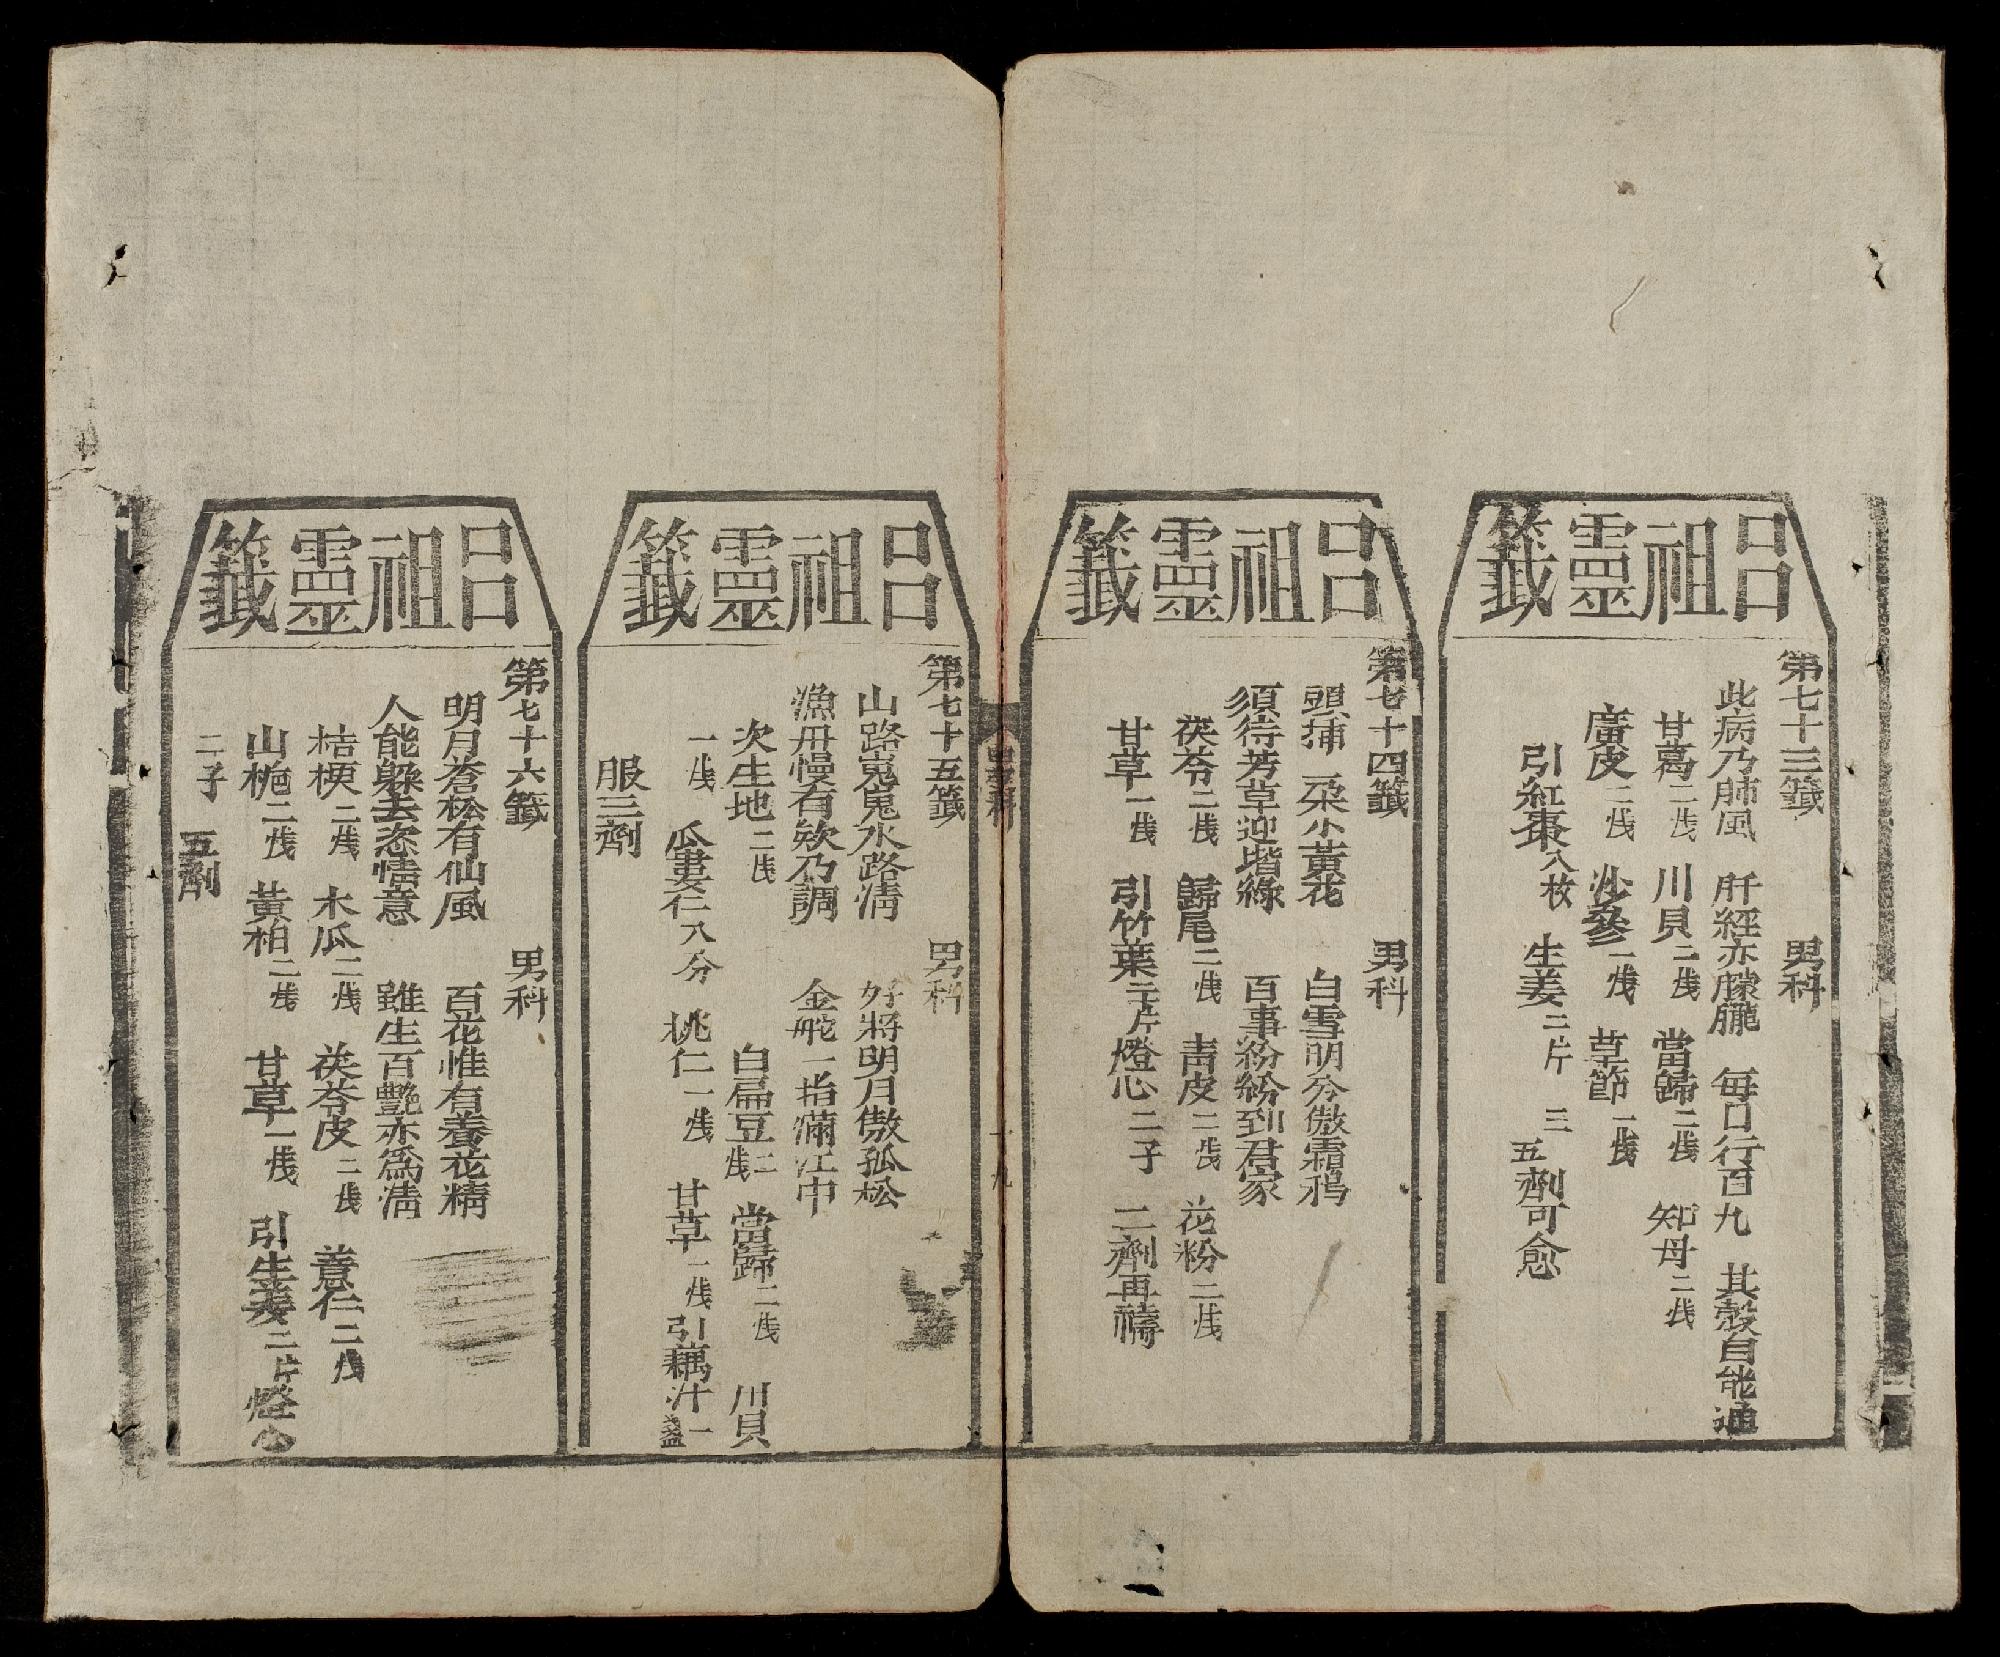 呂祖靈籤
第七十三籤　男科
此病乃肺風　肝經亦朦朧　每日行百九　其穀自能通
甘葛二戋　川貝二戋　當歸二戋　知母二戋
廣皮二戋　沙參一戋　草節一戋
引紅棗八枚　生姜二片　三五劑可愈
呂祖靈籤
第七十四籤　男科
頭捕一朶小黃花　白雪明分傲霜鴉
須待芳草迎堦綠　百事紛紛到君家
茯苓二戋　歸尾二戋　青皮二戋　花粉二戋
甘草一戋　引竹葉二十片燈心二子　二劑再禱
男科
十九
呂祖靈籤
第七十五籤　男科
山路嵬嵬水路清　好將明月傲孤松
漁舟慢有欸乃調　金舵一指滿江中
次生地二戋　白扁豆二戋　當歸二戋　川貝
一戋　瓜婁仁八分　桃仁一戋　甘草一戋　引藕汁一盞
服三劑
呂祖靈籤
第七十六籤　男科
明月蒼松有仙風　百花惟有養花精
人能躲去恣情意　雖生百艷亦為清
桔梗二戋　木瓜二戋　茯苓皮二戋　薏仁二戋
山梔二戋　黃柏二戋　甘草一戋　引生姜二片燈心
二子　五劑